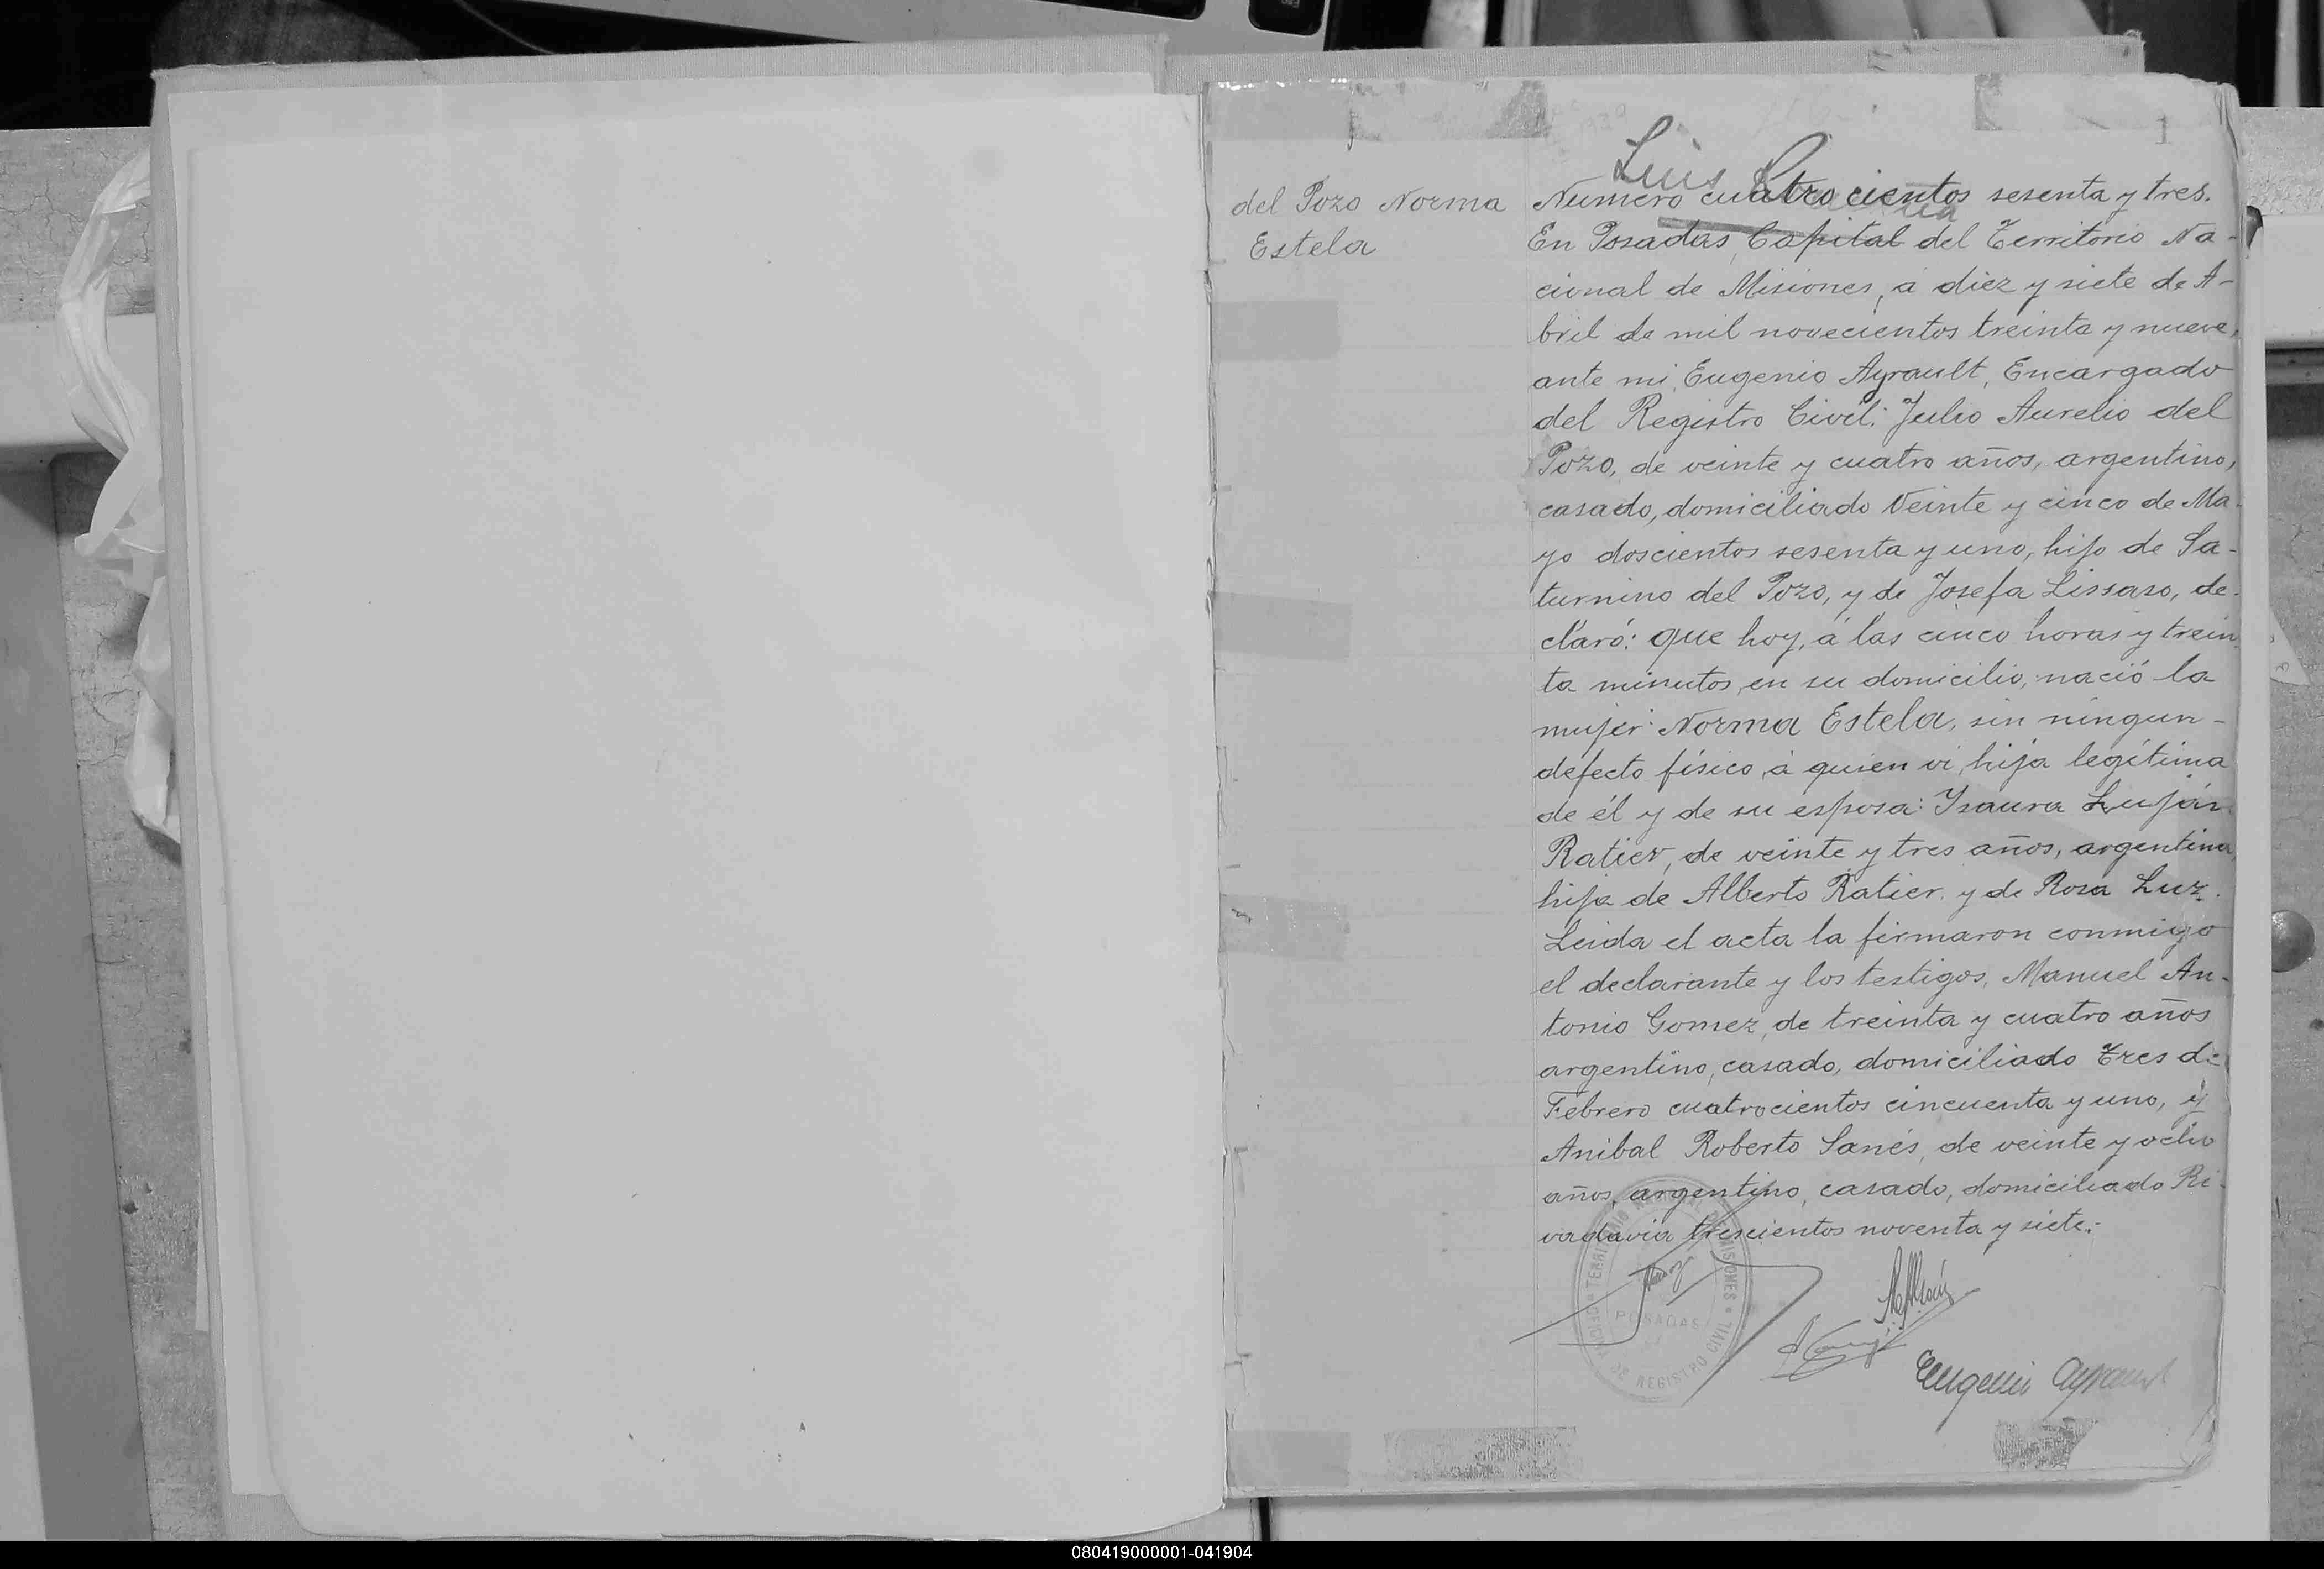 1
Luis
del Pozo Norma
Estela
Numero cuatrocientos sesenta y tres.
En Posadas, Capital del Territorio Na-
cional de Misiones, á diez y siete de A-
bril de mil novecientos treinta y nueve,
ante mi, Eugenio Ayrault, Encargado
del Registro Civil: Julio Aurelio del
Pozo, de veinte y cuatro años, argentino,
casado, domiciliado Veinte y cinco de Ma-
yo doscientos sesenta y uno, hijo de Sa-
turnino del Pozo, y de Josefa Lissaso, de-
claró: que hoy, á las cinco horas y trein-
ta minutos, en su domicilio, nació la
mujer: Norma Estela, sin ningun-
defecto físico, á quien vi, hija legítima
de él y de su esposa: Ysaura Luján
Ratier, de veinte y tres años, argentina,
hija de Alberto Ratier, y de Rosa Luz.
Leida el acta la firmaron conmigo
el declarante y los testigos, Manuel An-
tonio Gomez, de treinta y cuatro años
argentino, casado, domiciliado Tres de
Febrero cuatrocientos cincuenta y uno, y
Anibal Roberto Sanés, de veinte y ocho
años, argentino, casado, domiciliado Ri-
vadavia trescientos noventa y siete.-
TERRITORIO MISIONES
POSADAS
REGISTRO CIVIL
Eugenio Ayrault
080419000001-041904